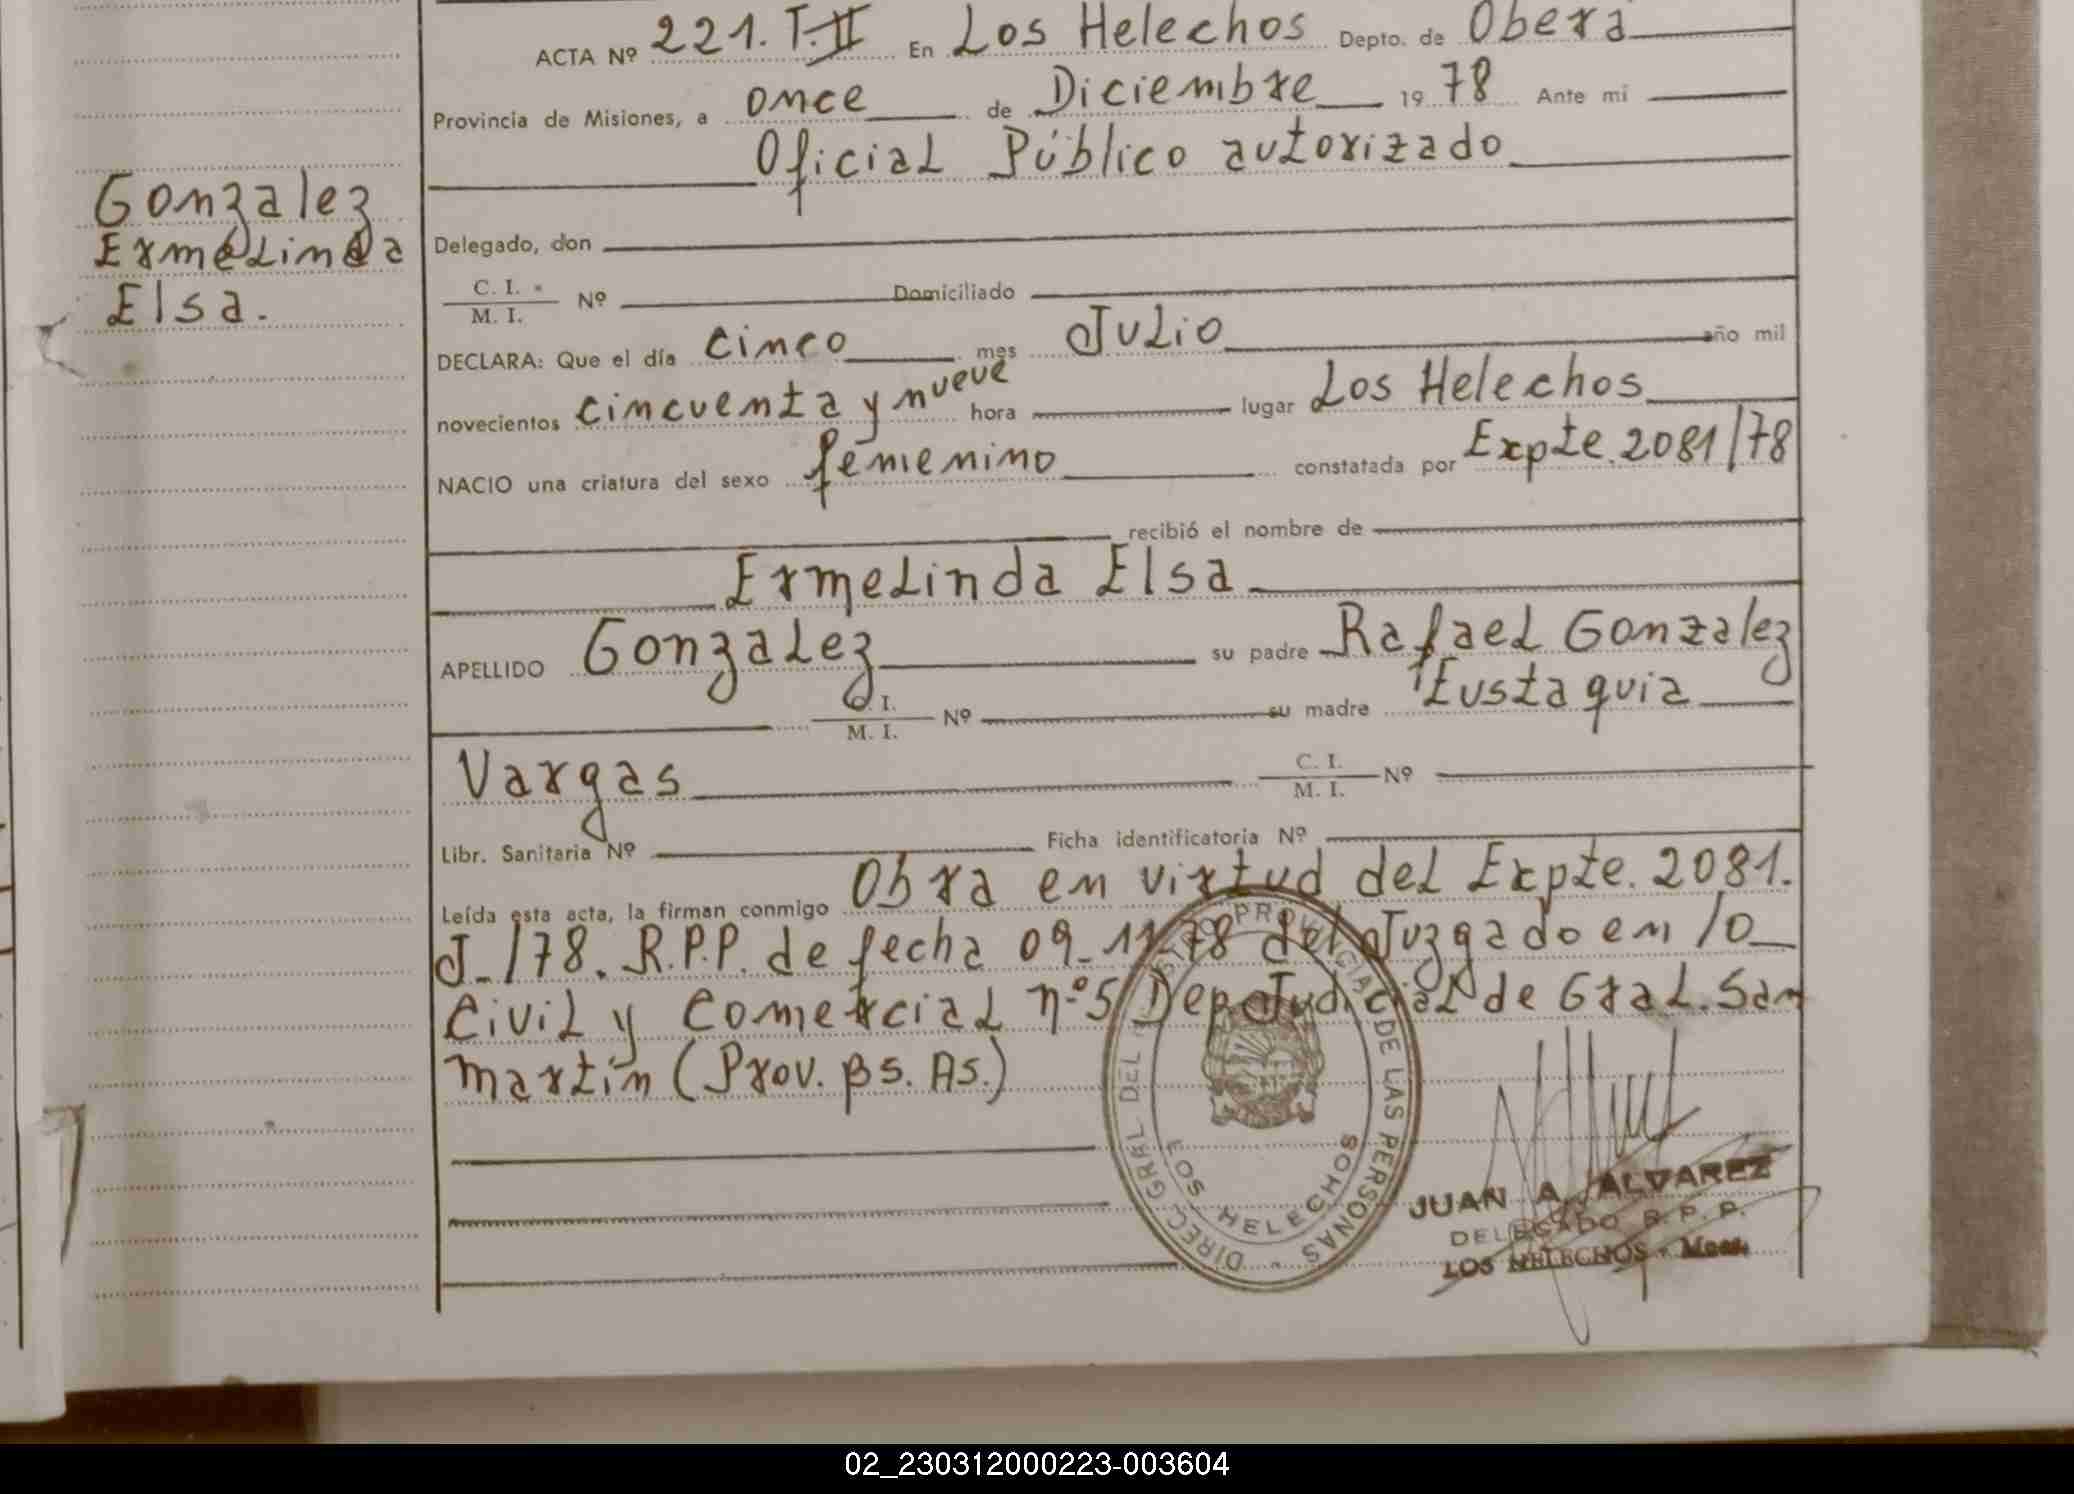 ACTA Nº 221. T.II En Los Helechos Depto. de Oberá
Provincia de Misiones, a once de Diciembre 1978 Ante mi
Oficial Público autorizado
Gonzalez
Ermelinda
Elsa.
Delegado, don
C. I.
M. I. Nº Domiciliado
DECLARA: Que el día cinco mes Julio año mil
novecientos cincuenta y nueve hora lugar Los Helechos
NACIO una criatura del sexo femenino constatada por Expte. 2081/78
recibió el nombre de
Ermelinda Elsa
APELLIDO Gonzalez su padre Rafael Gonzalez
C. I.
M. I. Nº su madre Eustaquia
Vargas C. I.
M. I. Nº
Libr. Sanitaria Nº Ficha identificatoria Nº
Leída esta acta, la firman conmigo Obra en virtud del Expte. 2081.
J_/78. R.P.P. de fecha 09_11_78 del Juzgado en lo
Civil y Comercial nº5 Dep. Judicial de Gral. San
Martín (Prov. Bs. As.)
PROVINCIAL DE LAS PERSONAS
DIREC. GRAL. DEL
LOS HELECHOS
JUAN A. ALVAREZ
DELEGADO R. P. P.
LOS HELECHOS - Mnes.
02_230312000223-003604